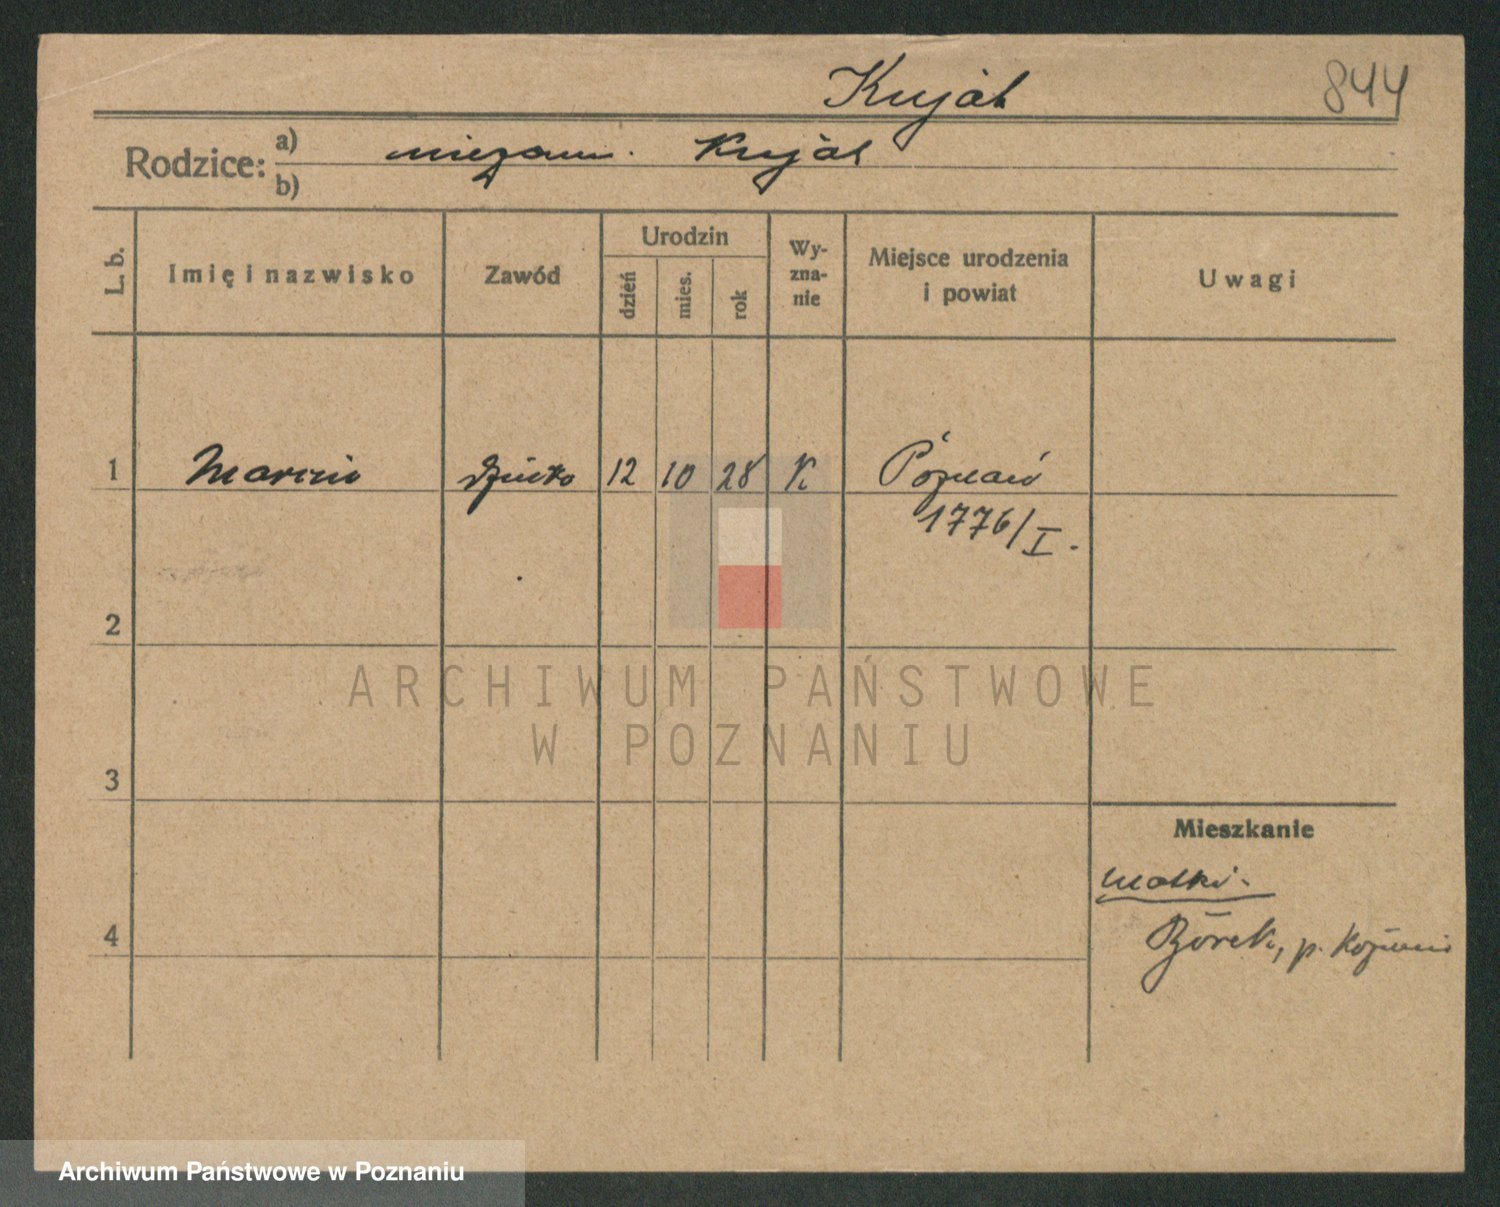 Kuják
844
Rodzice: a) niezam. Kuják
b)
L. b.
Imię i nazwisko
Zawód
Urodzin
dzień
mies.
rok
Wy-
zna-
nie
Miejsce urodzenia
i powiat
Uwagi
1 Marcin dziecko 12 10 28 K Poznań
1776/I.
2
3
4
Mieszkanie
matki-
Borek, p. Koźmin
ARCHIWUM PAŃSTWOWE
W POZNANIU
Archiwum Państwowe w Poznaniu